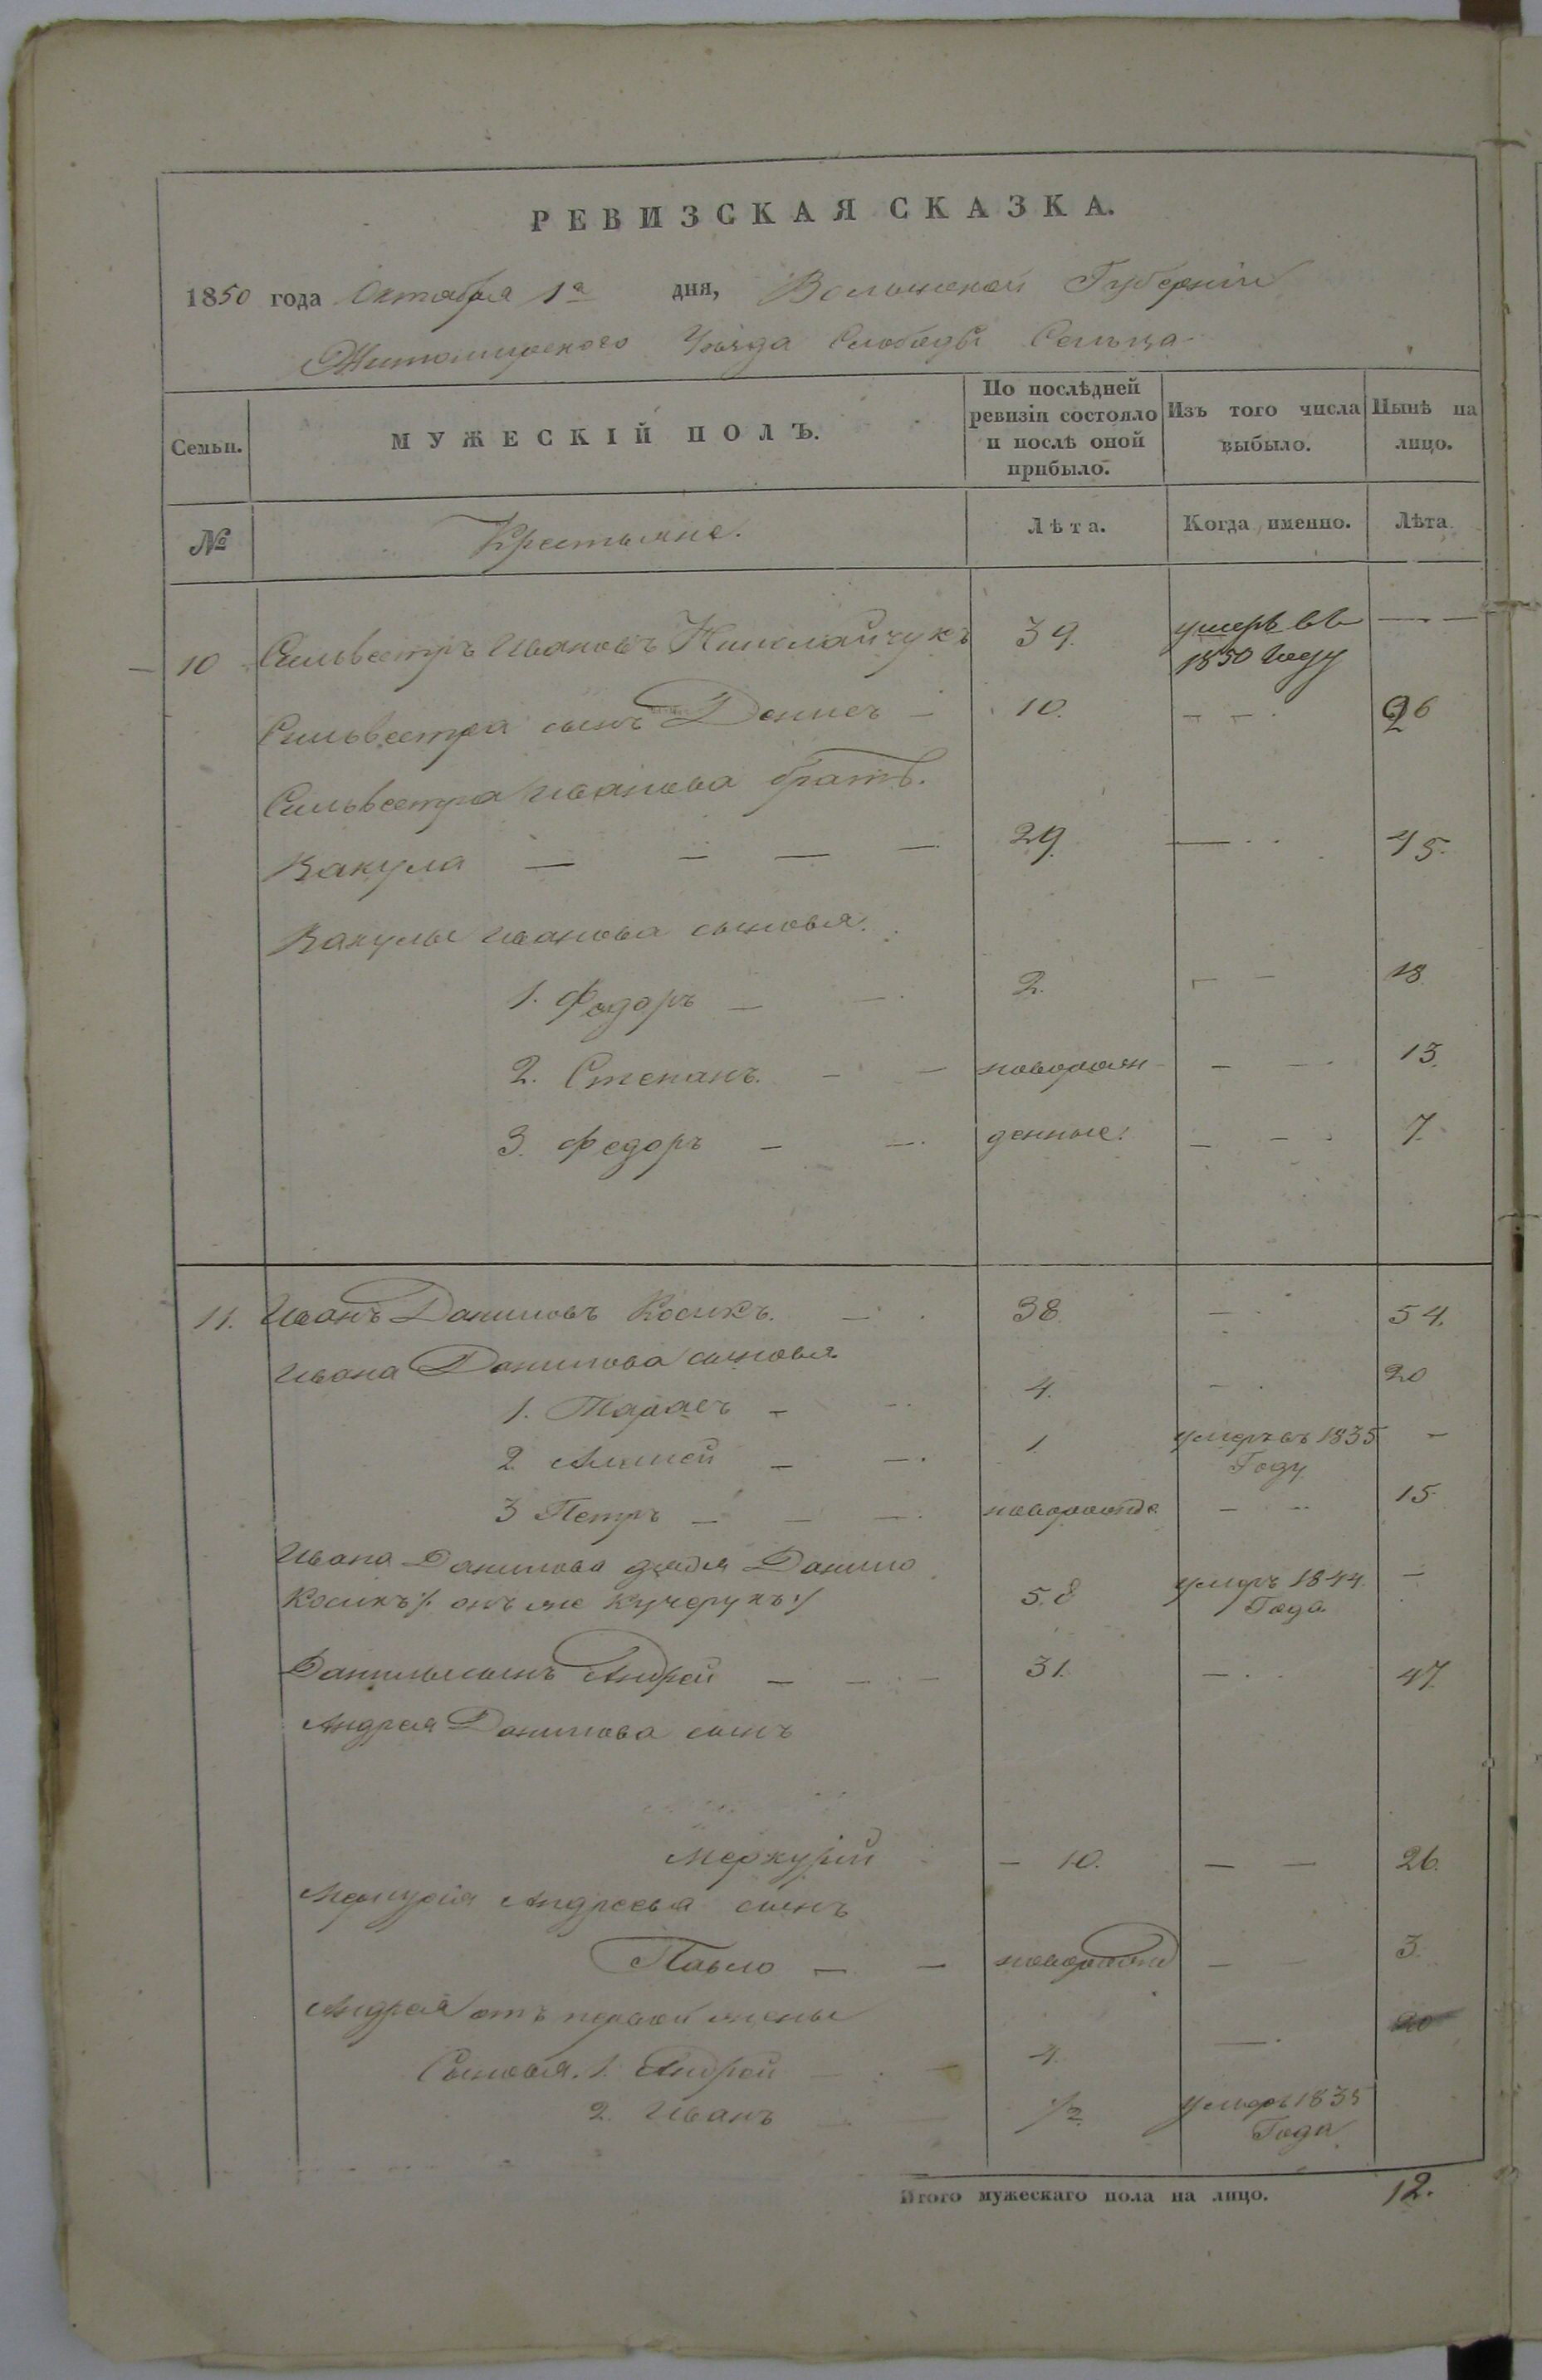 РЕВИЗСКАЯ СКАЗКА.
1850 года Октября 1го дня, Волынской Губерніи
Житомирского Уѣзда Слободы Сельца
Семьи.
МУЖЕСКІЙ ПОЛЪ.
По послѣдней ревизіи состояло и послѣ оной прибыло.
Изъ того числа выбыло.
Нынѣ на лицо.
№ Крестьяне. Лѣта. Когда именно. Лѣта
10 Сильвестръ Ивановъ Николайчукъ 39. умеръ въ 1850 Году — —
Сильвестра сынъ Денисъ — 10. — — 26
Сильвестра Иванова братъ.
Вакула — — — — 29. — 45.
Вакулы Иванова сыновья.
1. Федоръ — — 2. — — 18
2. Степанъ. — — новорож — — 13.
3. Федоръ — — денные. — — 7.
11. Иванъ Даниловъ Косикъ. — 38. — 54.
Ивана Данилова сыновья
1. Тарасъ — — 4. — 20
2. — — 1 умеръ въ 1835 Году —
3 Петръ — — — новорожде — — 15
Ивана Данилова дядя Данило
Косикъ /: онъ же Кучерукъ :/ 58 умеръ 1844 Года —
Данилы сынъ Андрей — — — 31. — 47.
Андрея Данилова сынъ
Меркурій — 10. — — 26.
Меркурія Андреева сынъ
Павло — — новорожд — — 3.
Андрея отъ первой жены
Сыновья. 1. Андрей — — 4. — 20
2. Иванъ — — 1/2 умеръ 1835 Года
Итого мужескаго пола на лицо. 12.